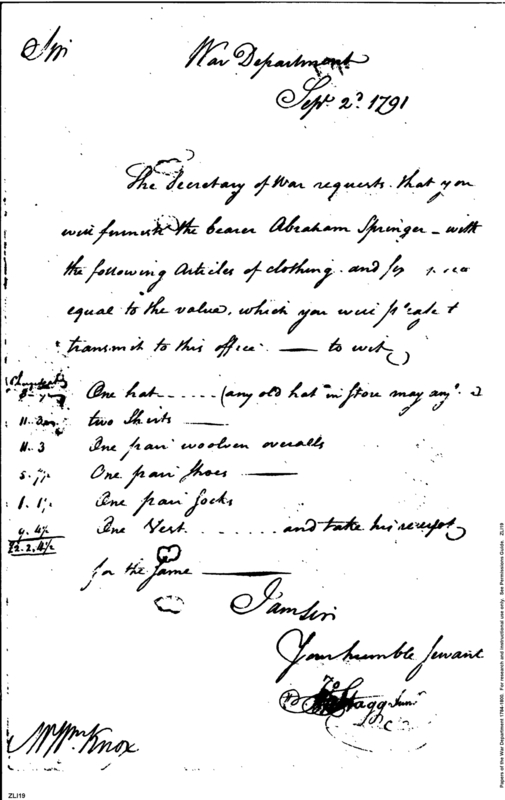 Sir
War Department
Sept. 2d. 1791
The Secretary of War requests that you
will furnish the bearer Abraham Springer - with
the following Articles of clothing. and
equal to the value, which you will
transmit to this office - to wit
One hat ...... (any old hat in Store may
11. two Shirts
11. 3 One pair woolen overalls
5. One pair Shoes
1. One pair Socks
9. 4½ One Vest ........ and take his receipt
£2.2.4½
for the Same
I am Sir
Your humble Servant
Jo Stagg Junr.
Mr Wm. Knox
ZLI19
Papers of the War Department 1784-1800. For research and instructional use only. See Permissions Guide. ZLI19